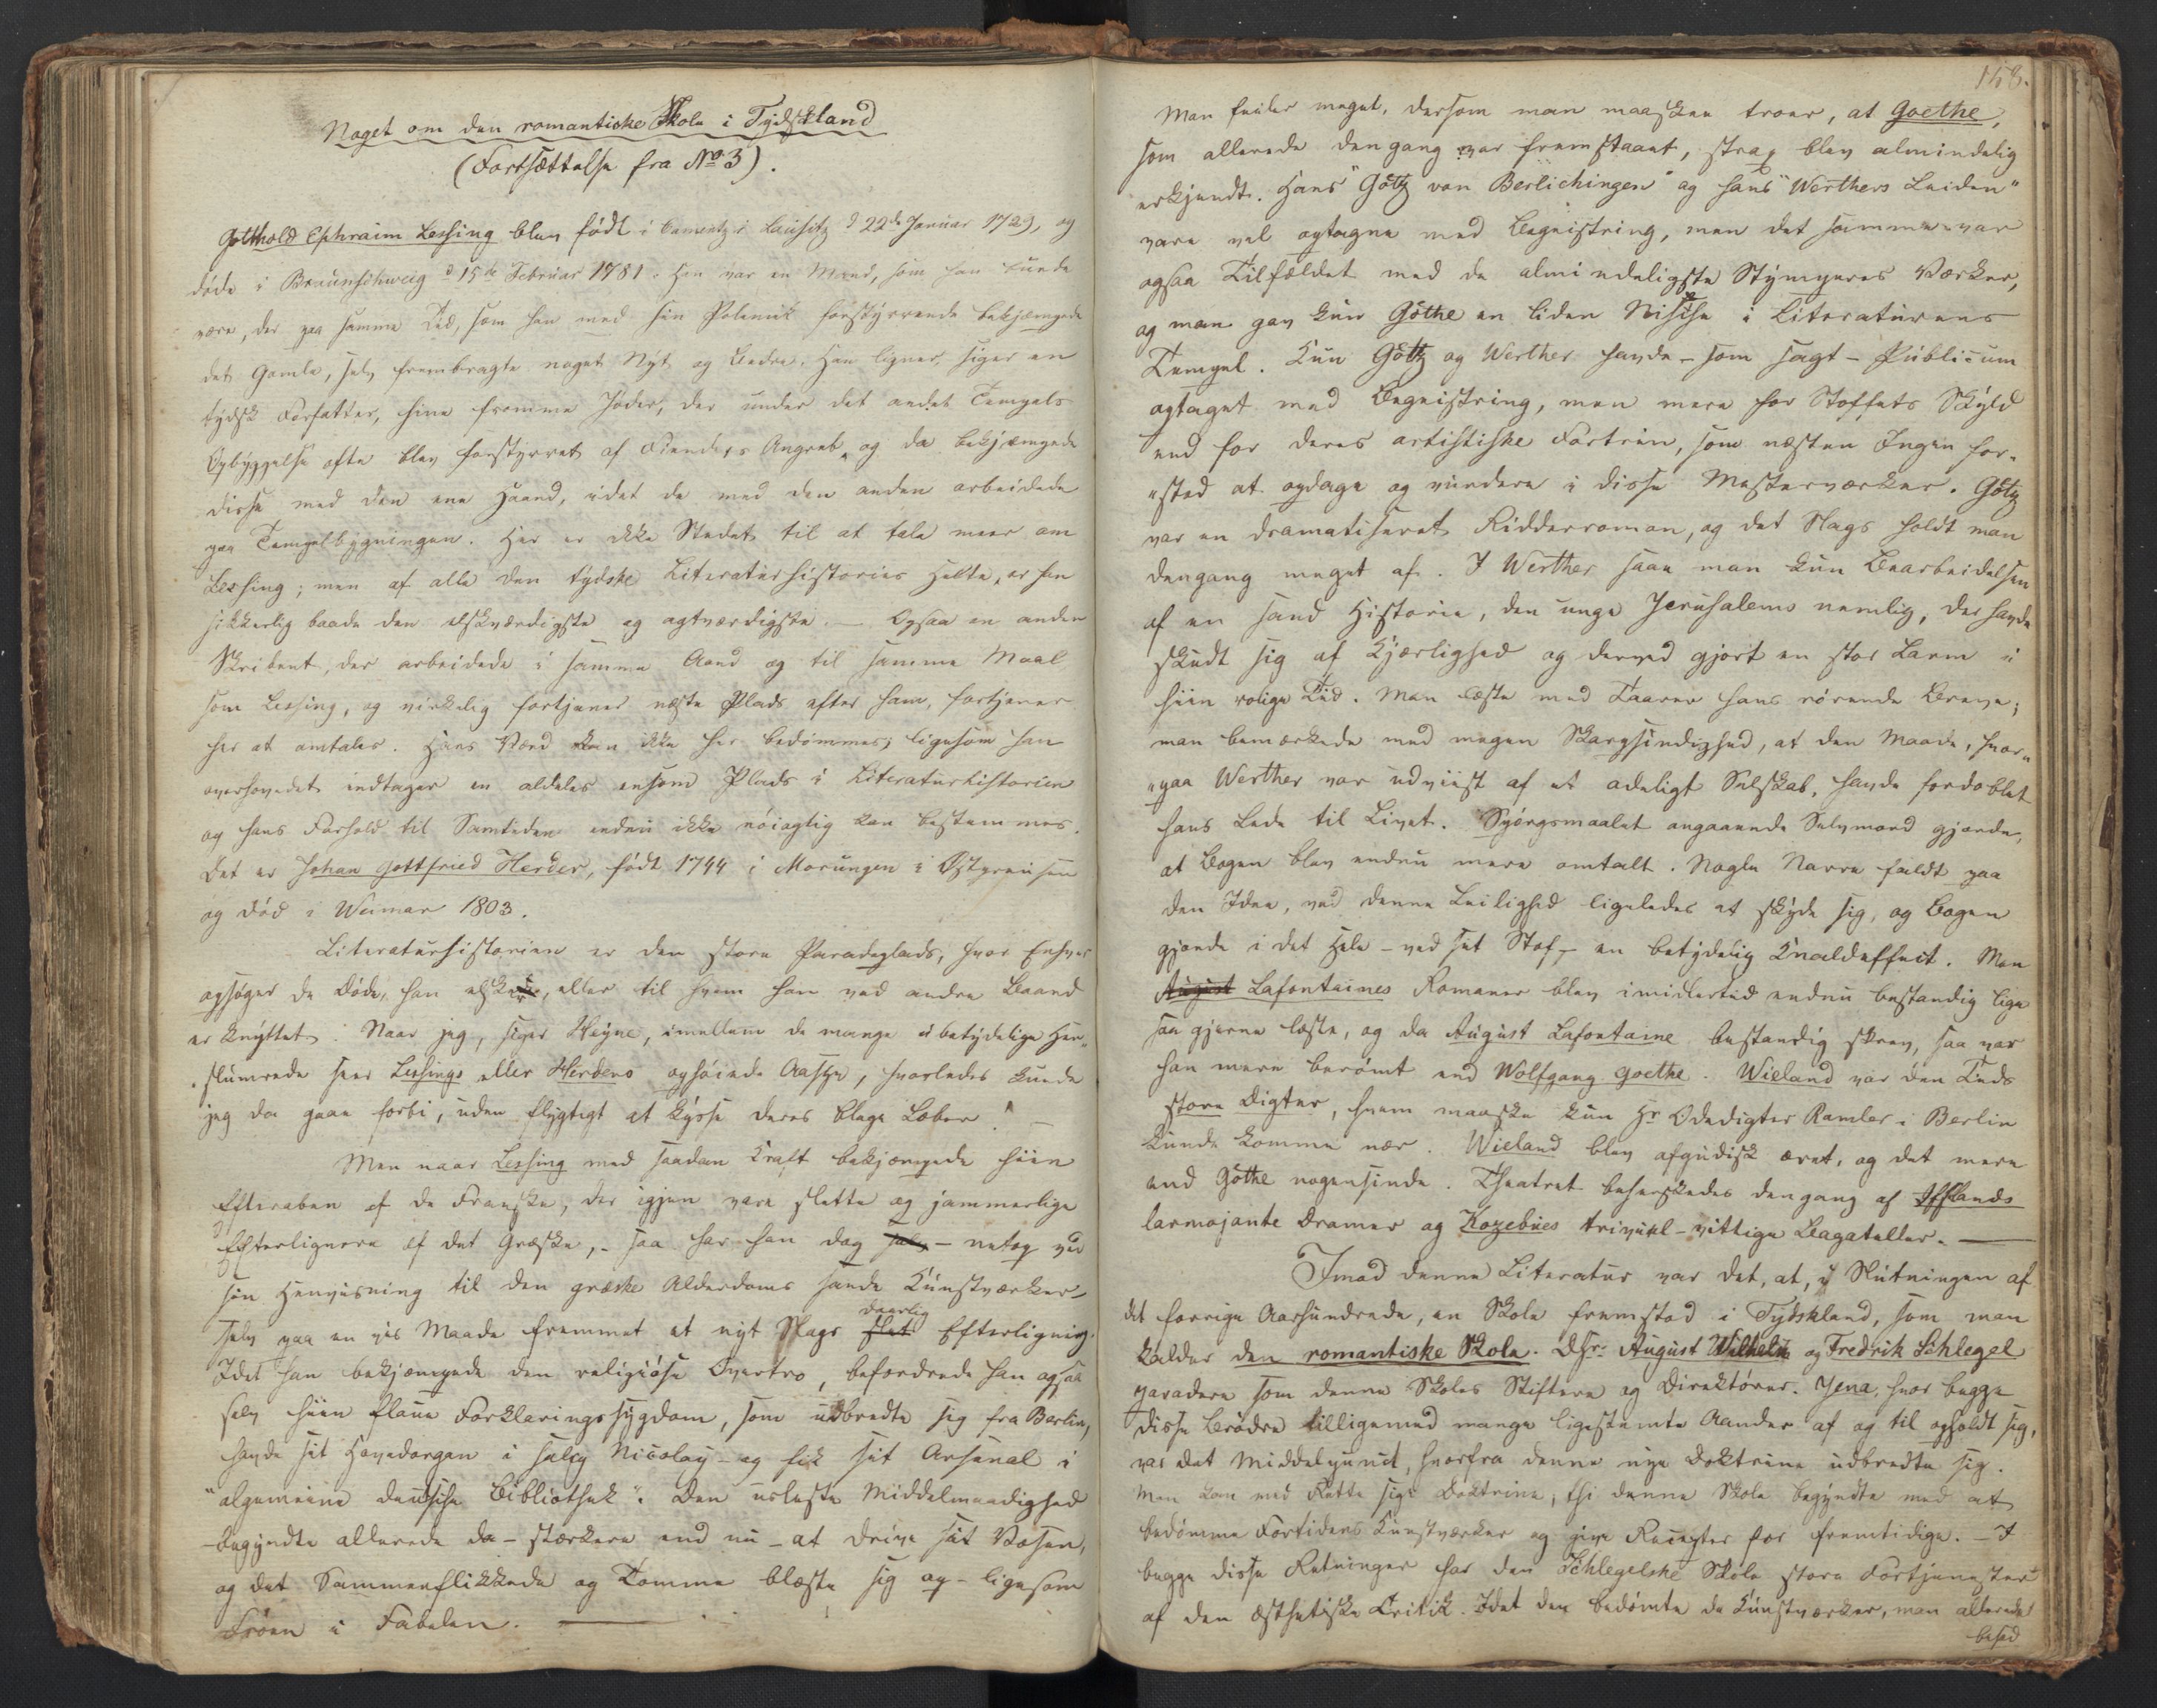 Noget om den romantiske Skole i Tydskland
(Fortsættelse fra No 3).
Gotthold Ephraim Lessing blev født i Camentz i Lausitz d 22de Januar 1729, og
døde i Braunschweig d 15de Februar 1781. Han var en Mand, som han burde
være, der paa samme Tid, som han med sin Polemik forstyrrende bekjæmpede
det Gamle, selv frembragte noget Nyt og Bedre. Han ligner, siger en
tydsk Forfatter, hine fromme Jøder, der under det andet Tempels
Opbyggelse ofte blev forstyrret af Fienders Angreb, og da bekjæmpede
disse med den ene Haand, idet de med den anden arbeidede
paa Tempelbygningen. Her er ikke Stedet til at tale meer om
Lessing; men af alle den tydske Literaturhistories Helte, er han
sikkerlig baade den elskværdigste og agtværdigste. — Ogsaa en anden
Skribent, der arbeidede i samme Aand og til samme Maal
som Lessing, og virkelig fortjener næste Plads efter ham, fortjener
her at omtales. Hans Værd kan ikke her bedømmes; ligesom han
overhovedet indtager en aldeles ensom Plads i Literaturhistorien
og hans Forhold til Samtiden endnu ikke nøiagtig kan bestemmes.
Det er Johan Gottfried Herder, født 1744 i Morungen i Østpreusen
og død i Weimar 1803.
Literaturhistorien er den store Paradeplads, hvor Enhver
opsøger de Døde, han elsker, eller til hvem han ved andre Baand
er knyttet. Naar jeg, siger Heyne, imellem de mange ubetydelige Hen-
slumrede seer Lessings eller Herders ophøiede Aasyn, hvorledes kunde
jeg da gaae forbi, uden flygtigt at kysse deres blege Læber! —
Men naar Lessing med saadan Kraft bekjæmpede hiin
Efteraben af de Franske, der igjen vare slette og jammerlige
Efterlignere af det Græske, - saa har han dog selv - netop ved
sin Henvisning til den græske Alderdoms sande Kunstværker -
selv paa en vis Maade fremmet et nyt Slags slet daarlig Efterligning.
Idet han bekjæmpede den religiøse Overtro, befordrede han ogsaa
selv hiin flaue Forklaringssygdom, som udbredte sig fra Berlin,
havde sit Hovedorgan i salig Nicolay - og fik sit Arsenal i
"algemeine deutsche Bibliothek". Den usleste Middelmaadighed
begyndte allerede da - stærkere end nu - at drive sit Væsen,
og det Sammenflikkede og Tomme blæste sig op - ligesom
Frøen i Fabelen. —
158.
Man feiler meget, dersom man maaskee troer, at Goethe,
som allerede dengang var fremstaaet, strax blev almindelig
erkjendt. Hans "Götz von Berlichingen" og hans "Werthers Leiden"
vare vel optagne med Begeistring, men det samme var
ogsaa Tilfældet med de almindeligste Stymperes Værker,
og man gav kun Göthe en liden Nische i Literaturens
Tempel. Kun Götz og Werther havde - som sagt - Publicum
optaget med Begeistring, men mere for Stoffets Skyld
end for deres artistiske Fortrin, som næsten Ingen for-
stod at opdage og vurdere i disse Mesterværker. Götz
var en dramatiseret Ridderroman, og det Slags holdt man
dengang meget af. I Werther saae man kun Bearbeidelsen
af en sand Historie, den unge Jerusalems nemlig, der havde
skudt sig af Kjærlighed og derved gjort en stor Larm i
hiin rolige Tid. Man læste med Taarer hans rørende Breve;
man bemærkede med megen Skarpsindighed, at den Maade, hvor-
paa Werther var udviist af et adeligt Selskab, havde fordoblet
hans Lede til Livet. Spørgsmaalet angaaende Selvmord gjorde,
at Bogen blev endnu mere omtalt. Nogle Narre faldt paa
den Idee, ved denne Leilighed ligeledes at skyde sig, og Bogen
gjorde i det Hele - ved sit Stof - en betydelig Knaldeffect. Men
August Lafontaines Romaner blev imidlertid endnu bestandig lige
saa gjerne læste, og da August Lafontaine bestandig skrev, saa var
han mere berømt end Wolfgang Goethe. Wieland var den Tids
store Digter, hvem maaske kun Hr Odedigter Ramler i Berlin
kunde komme nær. Wieland blev afgudisk æret, og det mere
end Göthe nogensinde. Theatret beherskedes dengang af Ifflands
larmojante Dramer og Kozebues trivial-vittige Bagateller. —
Imod denne Literatur var det, at, i Slutningen af
det forrige Aarhundrede, en Skole fremstod i Tydskland, som man
kalder den romantiske Skole. DHr: August Wilhelm og Fredrik Schlegel
paradere som denne Skoles Stiftere og Direktører. Jena, hvor begge
disse Brødre tilligemed mange ligestemte Aander af og til opholdt sig,
var det Middelpunct, hvorfra denne nye Doktrine udbredte sig.
Man kan med Rette sige Doktrine, thi denne Skole begyndte med at
bedømme Fortidens Kunstværker og give Recepter for fremtidige. - I
begge disse Retninger har den Schlegelske Skole store Fortjenester
af den æsthetiske Critik. Idet den bedømte de Kunstværker, man allerede
besad